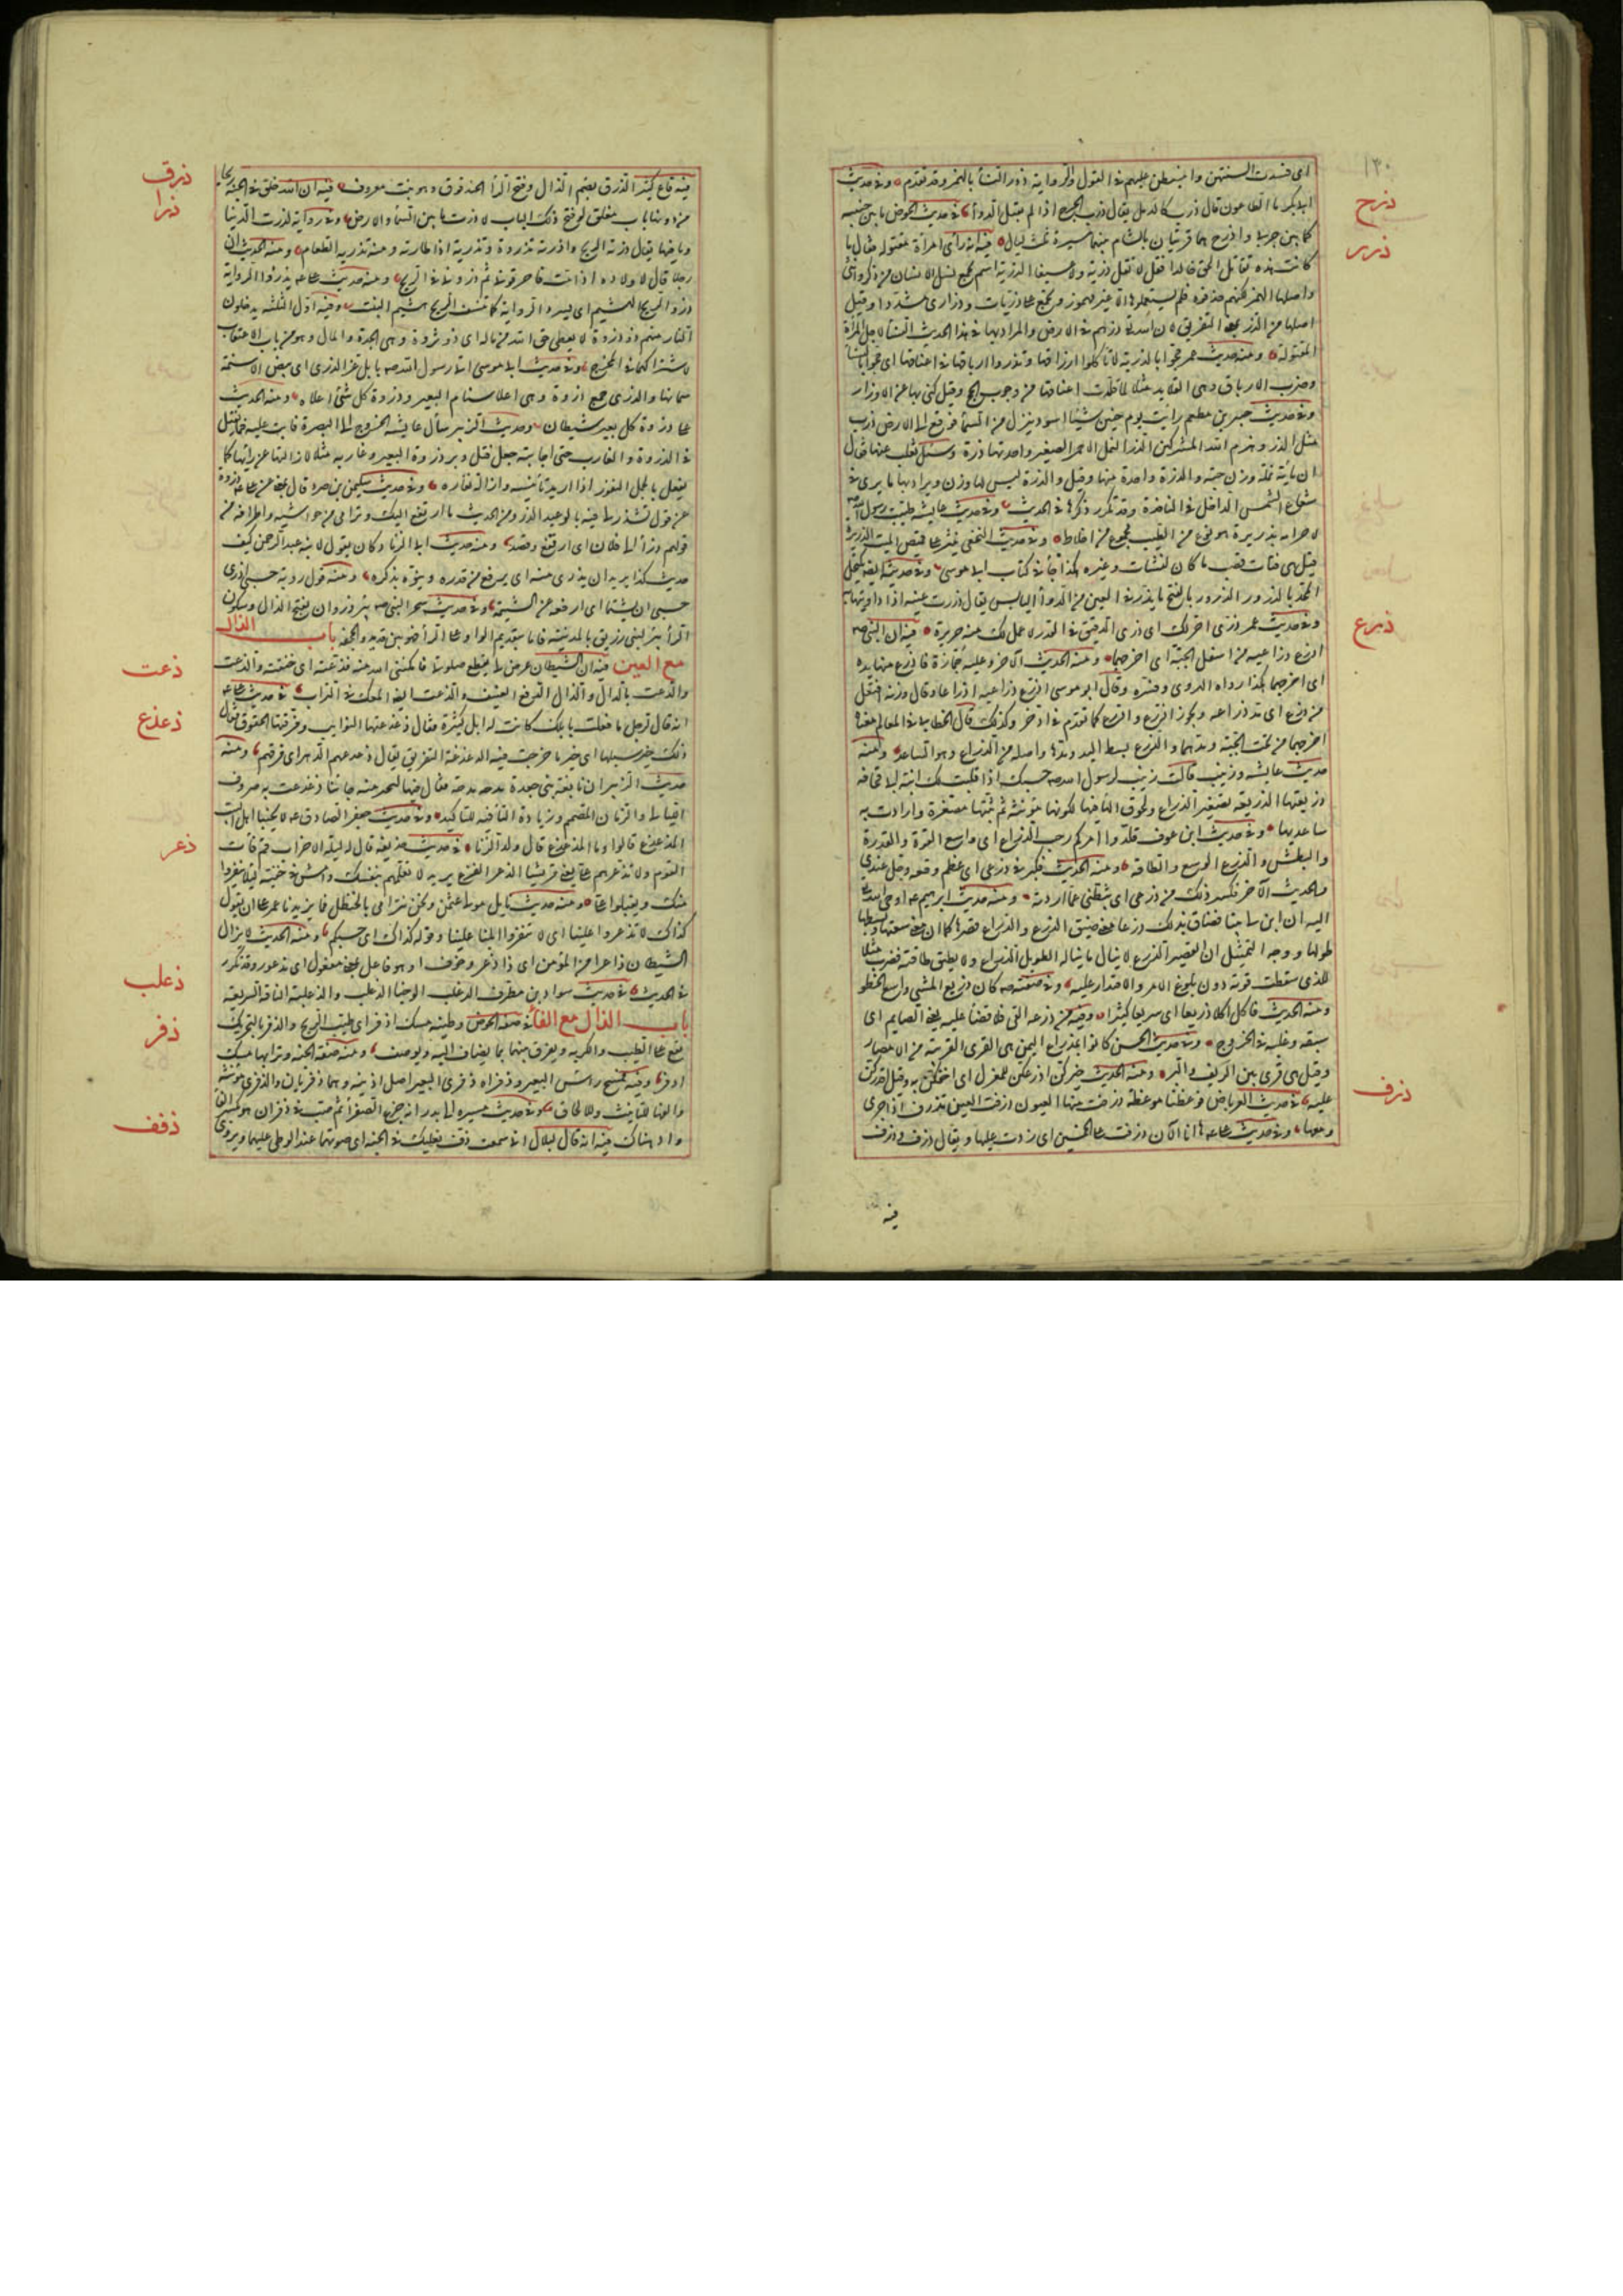 ١٣٠
اى فسدت السنتهن وانبسطن عليهم فى القول والرواية ذئر النسأ بالهمز وقد تقدم وفى حديث
ابى بكر ما الطاعون قال ذرب كالدمل يقال ذرب الجرح اذا لم يقبل الدوأ فى حديث الحوض ما بين جنبيه
ذرح
كما بين جربا واذرح هما قريتان بالشام بينهما مسيرة ثلث ليال فيه انه رأى امرأة مقتولة فقال ما
ذرر
كانت هذه تقاتل الحق خالدا فقل له لا تقتل ذرية ولا عسيفا الذرية اسم يجمع نسل الانسان من ذكر وانثى
واصلها الهمز لكنهم حذفوه فلم يستعملوها الا غير مهموز وتجمع على ذريات وذرارى مشددا وقيل
اصلها من الذر بمعنى التفريق لان الله تع ذرهم فى الارض والمراد بها فى هذا الحديث النسأ لاجل المرأة
المقتولة ومنه حديث عمر حجوا بالذرية لا تأكلوا ارزاقها وتذروا ارباقها فى اعناقها اى حجوا بالنسأ
وضرب الارباق وهى القلايد مثلا لما قلدت اعناقها من وجوب الحج وقيل كنى بها عن الاوزار
وفى حديث جبير بن مطعم رأيت يوم حنين شيئا اسود ينزل من السمأ فوقع الى الارض فدب
مثل الذر وهزم الله المشركين الذر النمل الاحمر الصغير واحدتها ذرة وسئل ثعلب عنها فقال
ان مأية نملة وزن حبة والذرة واحدة منها وقيل الذرة ليس لها وزن ويراد بها ما يرى فى
شعاع الشمس الداخل فى النافذة وقد تكرر ذكرها فى الحديث وفى حديث عايشة طيبت رسول الله صه
لاحرامه بذريرة هو نوع من الطيب مجموع من اخلاط وفى حديث النخعى ينثر على قميص الميت الذريرة
قيل هى فتات قصب ما كان لنشاب وغيره هكذا جأ فى كتاب ابى موسى وفى حديثه ايضا تكتحل
المحد بالذرور الذرور بالفتح ما يذر فى العين من الدوأ اليابس يقال ذررت عينه اذا داويتها به
وفى حديث عمر ذرى احر لك اى ذرى الدقيق فى القدر لاعمل لك منه حريرة فيه ان النبى صه
ذرع
اذرع ذراعيه من اسفل الجبة اى اخرجهما ومنه الحديث الاخر وعليه جمازة فاذرع منها يده
اى اخرجها هكذا رواه الهروى وفسره وقال ابو موسى اذرع ذراعيه اذراعا وقال وزنه افتعل
من ذرع اى مد ذراعه ويجوز اذرع واذرع كما تقدم فى اذخر وكذلك قال الخطابى فى المعالم معناه
اخرجهما من تحت الجبة ومدهما والذرع بسط اليد ومدها واصله من الذراع وهو الساعد ومنه
حديث عايشة وزينب قالت زينب لرسول الله صه حسبك اذا قلبت لك ابنة ابى قحافه
ذريعتيها الذريعة تصغير الذراع ولحوق الهأ فيها لكونها مؤنثة ثم ثنتها مصغرة وارادت به
ساعديها وفى حديث ابن عوف قلدوا امركم رحب الذراع اى واسع القوة والقدرة
والبطش والذرع الوسع والطاقة ومنه الحديث فكبر فى ذرعى اى عظم وقعه وجل عندى
والحديث الاخر فكسر ذلك من ذرعى اى ثبطنى عما اردته ومنه حديث ابراهيم عه اوحى الله
اليه ان ابن لى بيتا فضاق بذلك ذرعا معنى ضيق الذرع والذراع قصرها كما ان معنى سعتها وبسطها
طولها ووجه التمثيل ان القصير الذرع لا ينال ما يناله الطويل الذراع ولا يطيق طاقته فضرب مثلا
للذى سقطت قوته دون بلوغ الامر والاقتدار عليه وفى صفته صه كان ذريع المشى اى واسع الخطو
ومنه الحديث فاكل اكلا ذريعا اى سريعا كثيرا وفيه من ذرعه القئ فلا قضأ عليه يعنى الصايم اى
سبقه وغلبه فى الخروج وفى حديث الحسن كانوا بمذراع اليمن هى القرى القريبة من الامصار
وقيل هى قرى بين الريف والبر ومنه الحديث خيركن اذرعكن للمغزل اى اخفكن به وقيل اقدركن
عليه فى حديث العرباض فوعظنا موعظة ذرفت منها العيون ذرفت العين تذرف اذا جرى
ذرف
دمعها وفى حديث على عه ها انا الان ذرفت على الخمسين اى زدت عليها ويقال ذرف وذرف
فيه
فيه قاع كثير الذرق بضم الذال وفتح الرأ الحندقوق وهو نبت معروف فيه ان الله خلق فى الجنة ريحا
ذرق
ذرا
من دونها باب مغلق لو فتح ذلك الباب لاذرت ما بين السمأ والارض وفى رواية لذرت الدنيا
وما فيها يقال ذرته الريح واذرته تذروه وتذريه اذا اطارته ومنه تذرية الطعام ومنه الحديث ان
رجلا قال لاولاده اذا مت فاحرقونى ثم ذرونى فى الريح ومنه حديث على عه يذرو الرواية
ذرو الريح الهشيم اى يسرد الرواية كما تنسف الريح هشيم النبت وفيه اول الثلثة يدخلون
النار منهم ذو ذروة لا يعطى حق الله من ماله اى ذو ثروة وهى الجدة والمال وهو من باب الاعتقاب
لاشتراكهما فى المخرج وفى حديث ابى موسى اتى رسول الله صه بابل غر الذرى اى بيض الاسنمة
سمانها والذرى جمع ذروة وهى اعلى سنام البعير وذروة كل شئ اعلاه ومنه الحديث
على ذروة كل بعير شيطان وحديث الزبير سأل عايشة الخروج الى البصرة فابت عليه فما زال يفتل
فى الذروة والغارب حتى اجابته جعل فتل وبر ذروة البعير وغاربه مثلا لازالتها عن رأيها كما
يفعل بالجمل النفور اذا اريد تأنيسه وازالة نفاره وفى حديث سليمن بن صرد قال بلغنى عن على عه ذرو
من قول تشذر لى فيه بالوعيد الذرو من الحديث ما ارتفع اليك وترامى من حواشيه واطرافه من
قولهم ذرأ الى فلان اى ارتفع وقصد ومنه حديث ابى الزناد كان يقول لابنه عبد الرحمن كيف
حديث كذا يريد ان يذرى منه اى يرفع من قدره وينوه بذكره ومنه قول رؤبة حسبى اذرى
حسبى ان يشتما اى ارفعه عن الشتيمة وفى حديث سحر النبى صه ببئر ذروان بفتح الذال وسكون
الرأ بئر لبنى زريق بالمدينة فاما بتقديم الواو على الرأ فهو بين قديد والجحفة باب الذال
مع العين فيه ان الشيطان عرض لى يقطع صلوتى فامكننى الله منه فذعته اى خنقته والذعت
ذعت
والدعت بالدال والذال الدفع العنيف والذعت ايضا المعك فى التراب فى حديث على عه
ذعذع
انه قال لرجل ما فعلت بابلك وكانت له ابل كثيرة فقال ذعذعتها النوايب وفرقتها الحقوق فقال
ذلك خير سبيلها اى خير ما خرجت فيه الذعذعة التفريق يقال ذعذعهم الدهر اى فرقهم ومنه
حديث الزبير ان نابغة بنى جعدة مدحه مدحة فقال فيها لتجبر منه جانبا ذعذعت به صروف
الليالى والزمان المصمم وزيادة البأ فيه للتأكيد وفى حديث جعفر الصادق عه لا يحبنا اهل البيت
المذعذع قالوا وما المذعذع قال ولد الزنا فى حديث حذيفة قال له ليلة الاحزاب قم فأت
ذعر
القوم ولا تذعرهم على يعنى قريشا الذعر الفزع يريد لا تعلمهم بنفسك وامش فى خفية ليلا ينفروا
منك ويقبلوا على ومنه حديث نايل مولى عثمن ونحن نترامى بالحنظل فما يزيدنا عمر على ان يقول
كذاك لا تذعروا علينا اى لا تنفروا ابلنا علينا وقوله كذاك اى حسبكم ومنه الحديث لا يزال
الشيطان ذاعرا من المؤمن اى ذا ذعر وخوف او هو فاعل بمعنى مفعول اى مذعور وقد تكرر
فى الحديث فى حديث سواد بن مطرف الذعلب الوجنا الذعلب والذعلبة الناقة السريعة
ذعلب
باب الذال مع الفأ فى صفة الحوض وطينه مسك اذفر اى طيب الريح والذفر بالتحريك
ذفر
يقع على الطيب والكريه ويفرق بينهما بما يضاف اليه ويوصف ومنه صفة الجنة وترابها مسك
اذفر وفيه فمسح رأس البعير وذفراه ذفرى البعير اصل اذنه وهما ذفريان والذفرى مؤنثة
والفها للتأنيث وللالحاق وفى حديث مسيره الى بدر انه جزع الصفرأ ثم صب فى ذفران هو بكسر الفأ
واد هناك فيه انه قال لبلال انى سمعت ذف نعليك فى الجنة اى صوتهما عند الوطى عليهما ويروى
ذفف